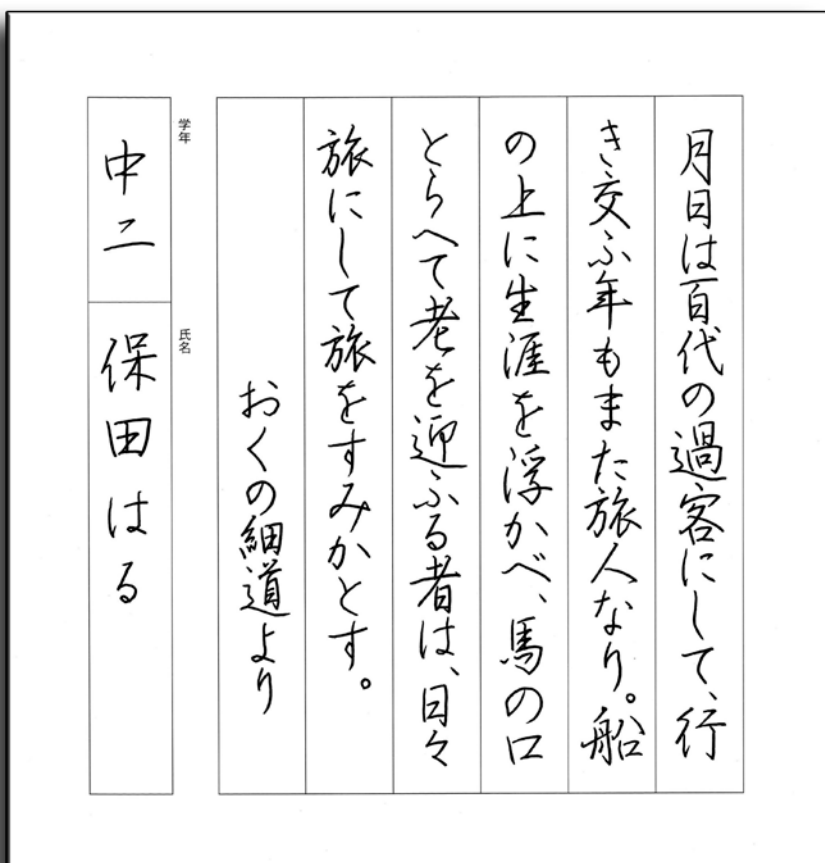 月日は百代の過客にして、行
き交ふ年もまた旅人なり。船
の上に生涯を浮かべ、馬の口
とらへて老を迎ふる者は、日々
旅にして旅をすみかとす。
おくの細道より
学年
中二
氏名
保田はる